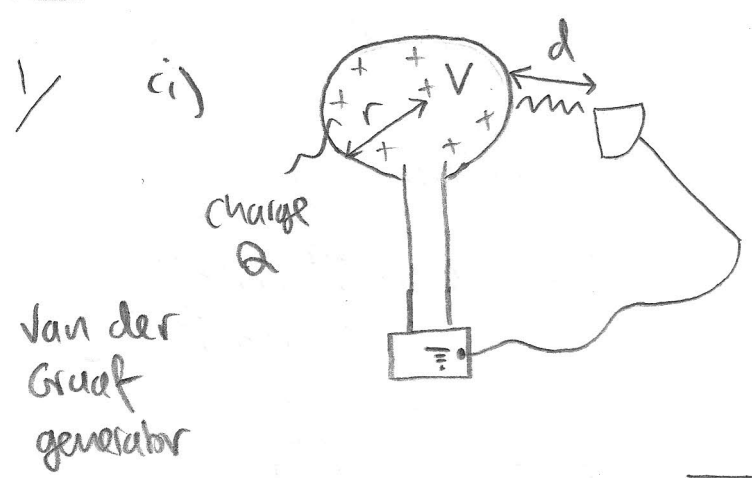 1/ (i)
d
V
r
+ + + + + + +
charge
Q
Van der
Graaf
generator